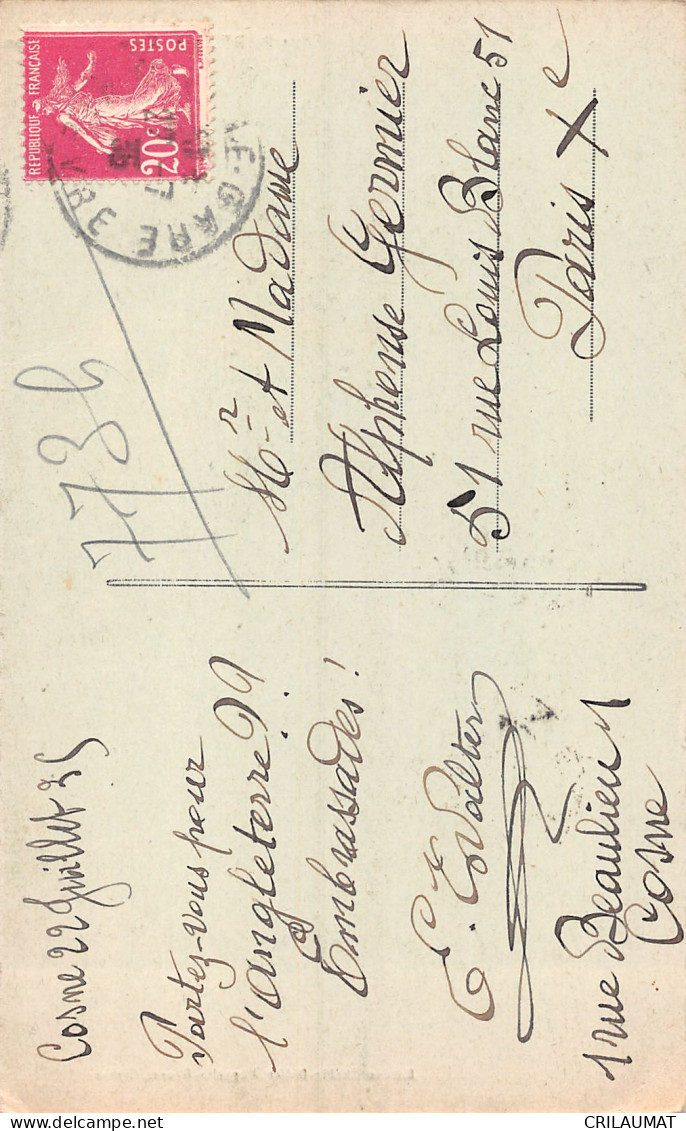 Cosne 22 Juillet 25
Partez-vous pour
l'angleterre??
Embrassades!
E. Walter
1 rue Beaulieu 1
Cosne
7736
RÉPUBLIQUE FRANÇAISE
POSTES
20c
E-GARE
Mr et Madame
Alphonse Germier
51 rue Louis Blanc 51
Paris Xe
CRILAUMAT